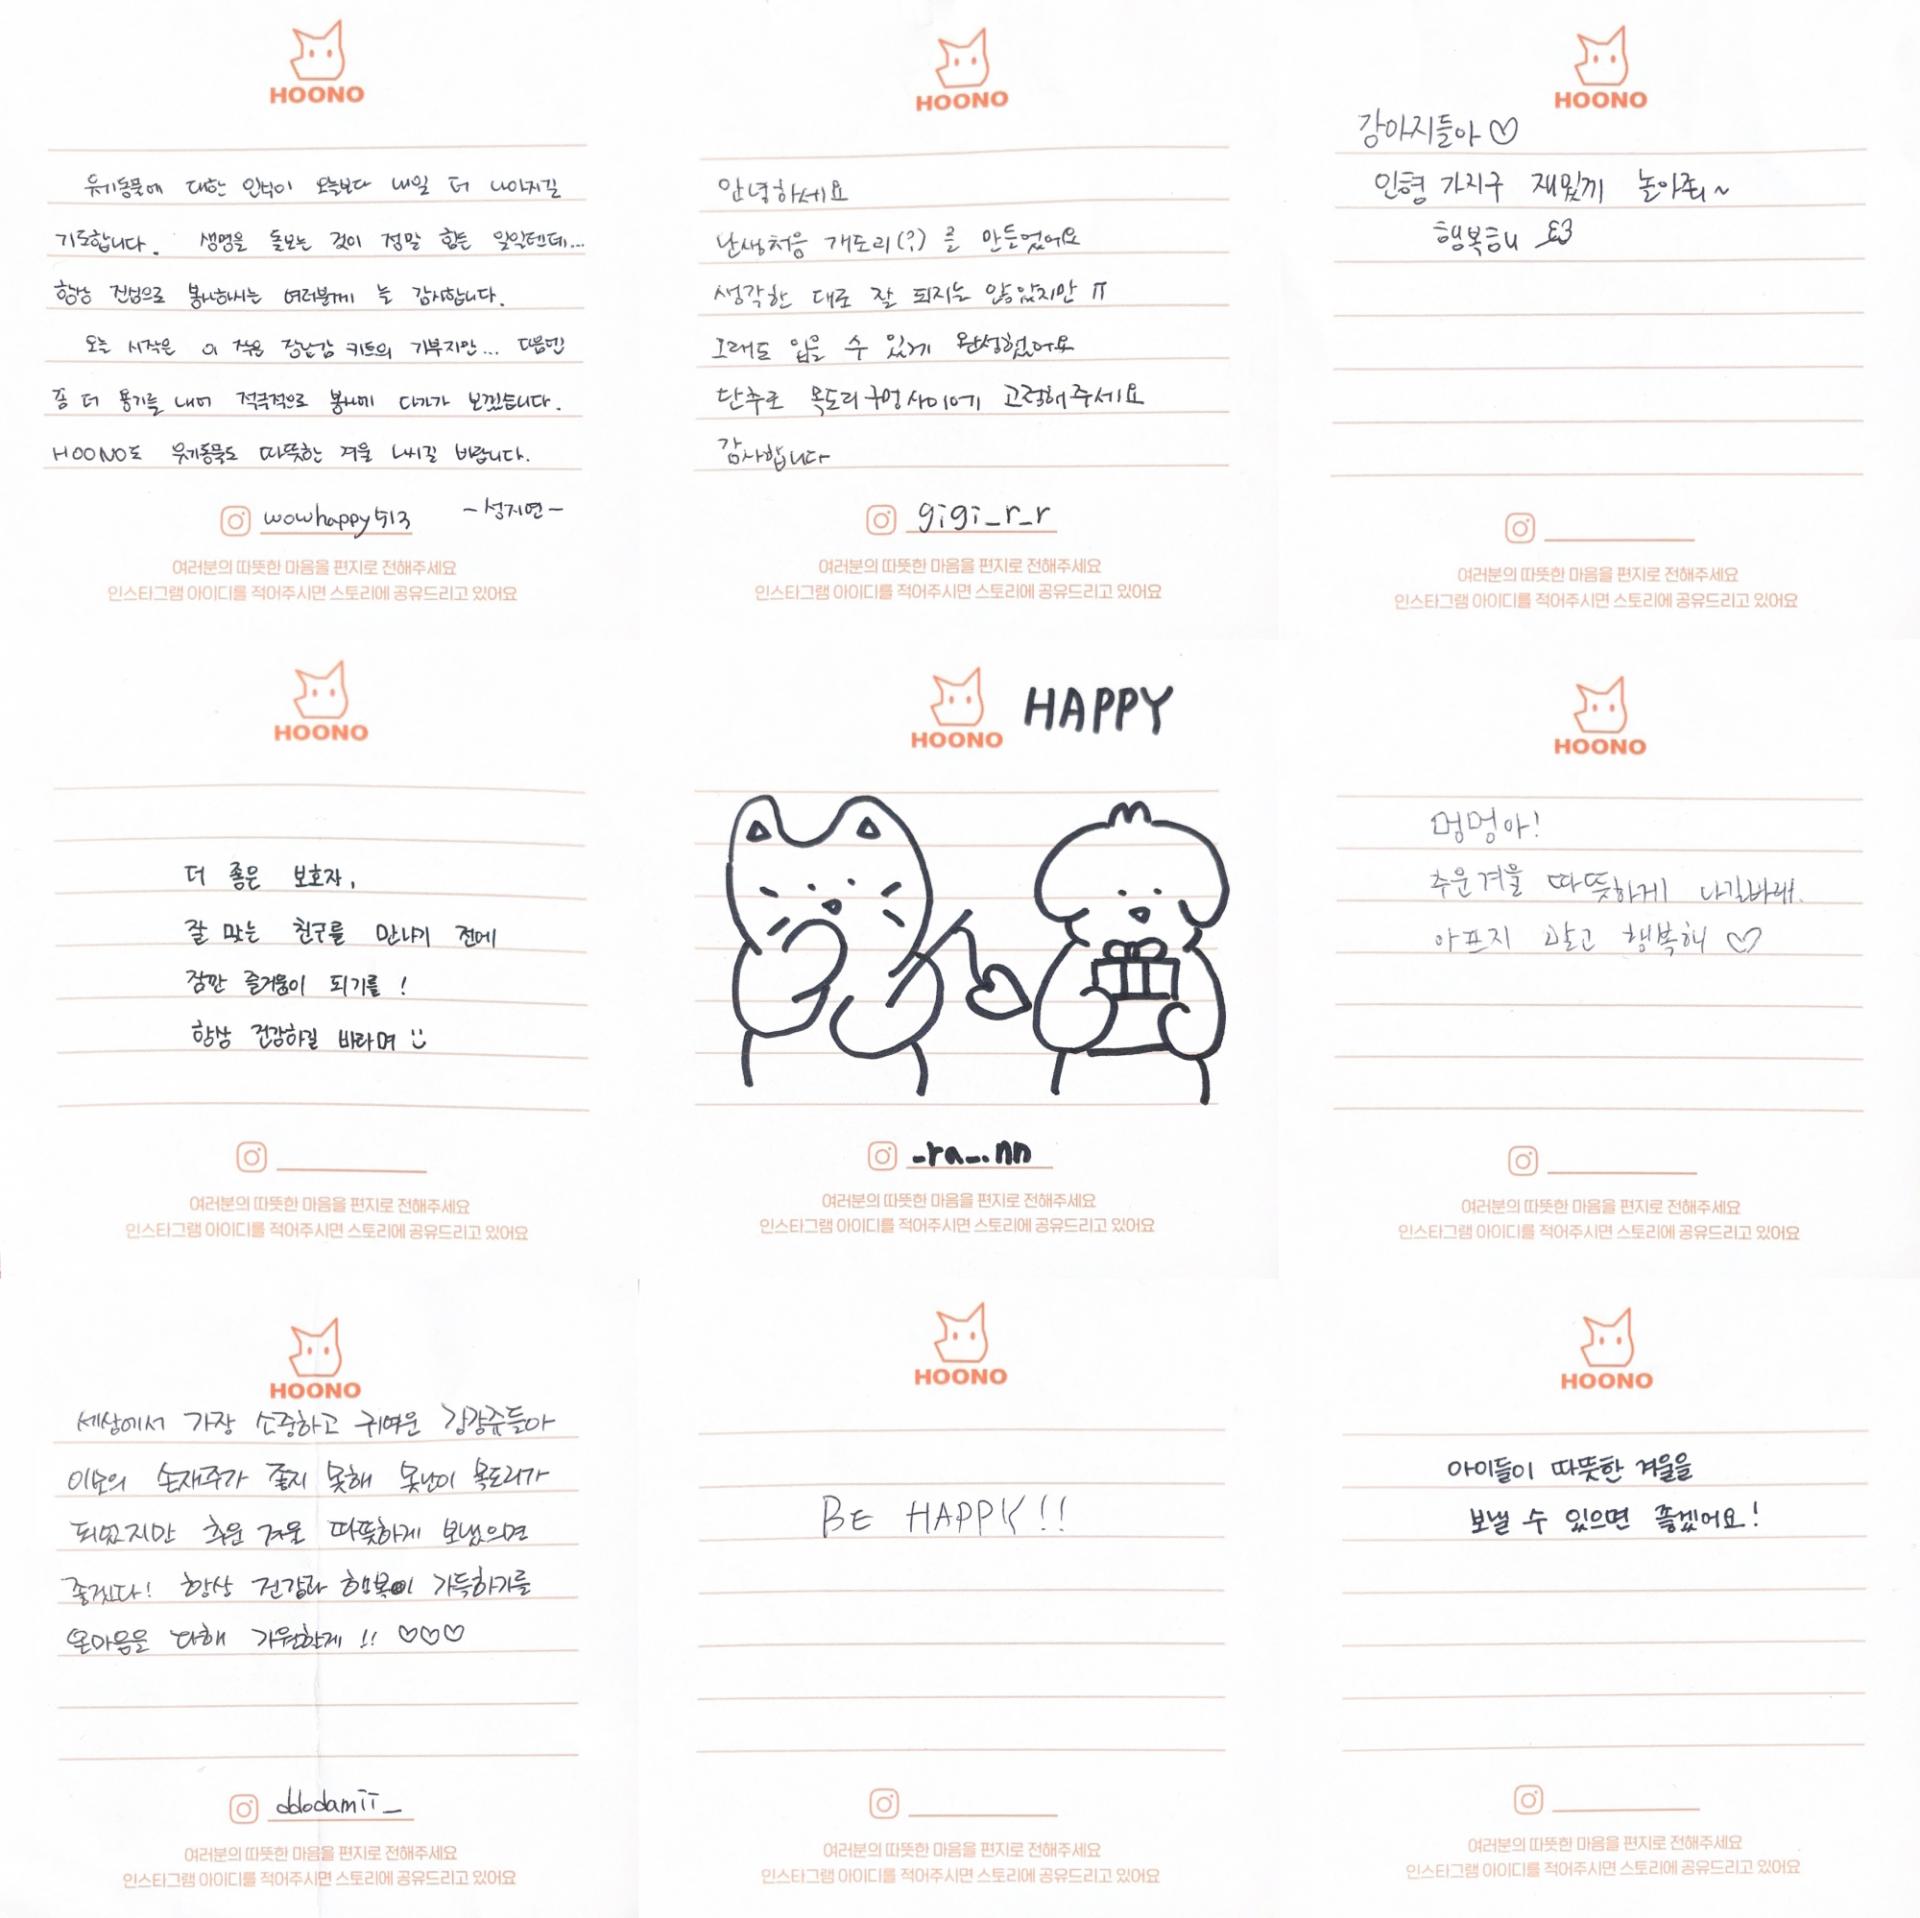 HOONO
유기동물에 대한 인식이 오늘보다 내일 더 나아지길
기도합니다. 생명을 돌보는 것이 정말 힘든 일일텐데...
항상 진심으로 봉사하시는 여러분께 늘 감사합니다.
오늘 시작은 이 작은 장난감 키트의 기부지만... 다음엔
좀 더 용기를 내어 적극적으로 봉사에 다가가 보겠습니다.
HOONO도 유기동물도 따뜻한 겨울 나시길 바랍니다.
wowhappy513 ~성지연~
여러분의 따뜻한 마음을 편지로 전해주세요
인스타그램 아이디를 적어주시면 스토리에 공유드리고 있어요
HOONO
안녕하세요
난생처음 개도리(?)를 만들었어요
생각한 대로 잘 되지는 않았지만 ㅠ
그래도 입을 수 있게 완성했어요
단추로 목도리 구멍 사이에 고정해주세요
감사합니다
gigi_r_r
여러분의 따뜻한 마음을 편지로 전해주세요
인스타그램 아이디를 적어주시면 스토리에 공유드리고 있어요
HOONO
강아지들아♡
인형 가지구 재밌끼 놀아줘~
행복해
여러분의 따뜻한 마음을 편지로 전해주세요
인스타그램 아이디를 적어주시면 스토리에 공유드리고 있어요
HOONO
더 좋은 보호자,
잘 맞는 친구를 만나기 전에
잠깐 즐거움이 되기를!
항상 건강하길 바라며 :)
여러분의 따뜻한 마음을 편지로 전해주세요
인스타그램 아이디를 적어주시면 스토리에 공유드리고 있어요
HOONO HAPPY
_ra_.nn
여러분의 따뜻한 마음을 편지로 전해주세요
인스타그램 아이디를 적어주시면 스토리에 공유드리고 있어요
HOONO
멍멍아!
추운겨울 따뜻하게 나길바래.
아프지 말고 행복해♡
여러분의 따뜻한 마음을 편지로 전해주세요
인스타그램 아이디를 적어주시면 스토리에 공유드리고 있어요
HOONO
세상에서 가장 소중하고 귀여운 깅강쥬들아
이모의 손재주가 좋지 못해 못난이 목도리가
되었지만 추운 겨울 따뜻하게 보냈으면
좋겠다! 항상 건강과 행복이 가득하기를
온마음을 다해 기원할게!! ♡♡♡
ddodamii_
여러분의 따뜻한 마음을 편지로 전해주세요
인스타그램 아이디를 적어주시면 스토리에 공유드리고 있어요
HOONO
BE HAPPY!!
여러분의 따뜻한 마음을 편지로 전해주세요
인스타그램 아이디를 적어주시면 스토리에 공유드리고 있어요
HOONO
아이들이 따뜻한 겨울을
보낼 수 있으면 좋겠어요!
여러분의 따뜻한 마음을 편지로 전해주세요
인스타그램 아이디를 적어주시면 스토리에 공유드리고 있어요